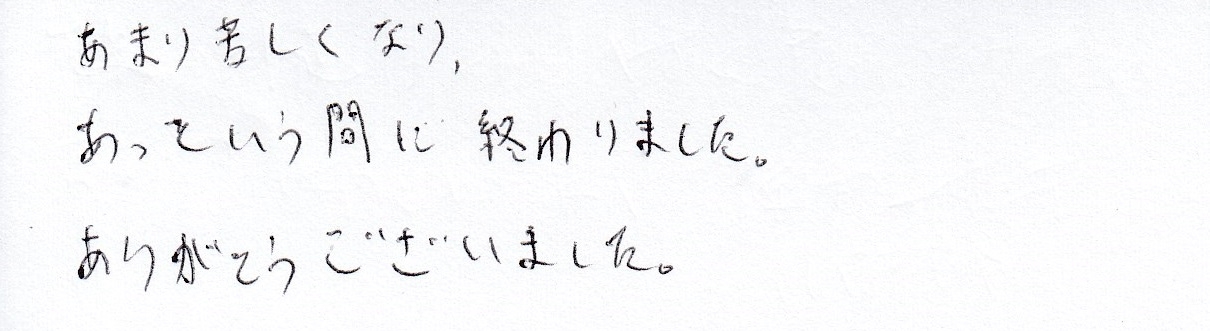 あまり苦しくなり,
あっという間に終わりました。
ありがとうございました。